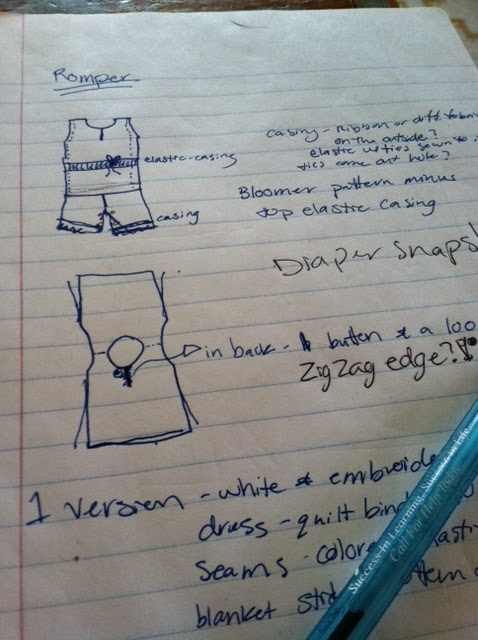 Romper
casing - Ribbon or diff. fabric
on the outside?
elastic w/ ties sewn to it
ties come out hole?
elastic-casing
Bloomer pattern minus
top elastic casing
casing
Diaper snaps!
in back - button & a loo
ZigZag edge?!
1 version - white & embroide
dress - quilt bind
seams - colore
blanket
Success in Learning, Success in Life
Call For Help Today